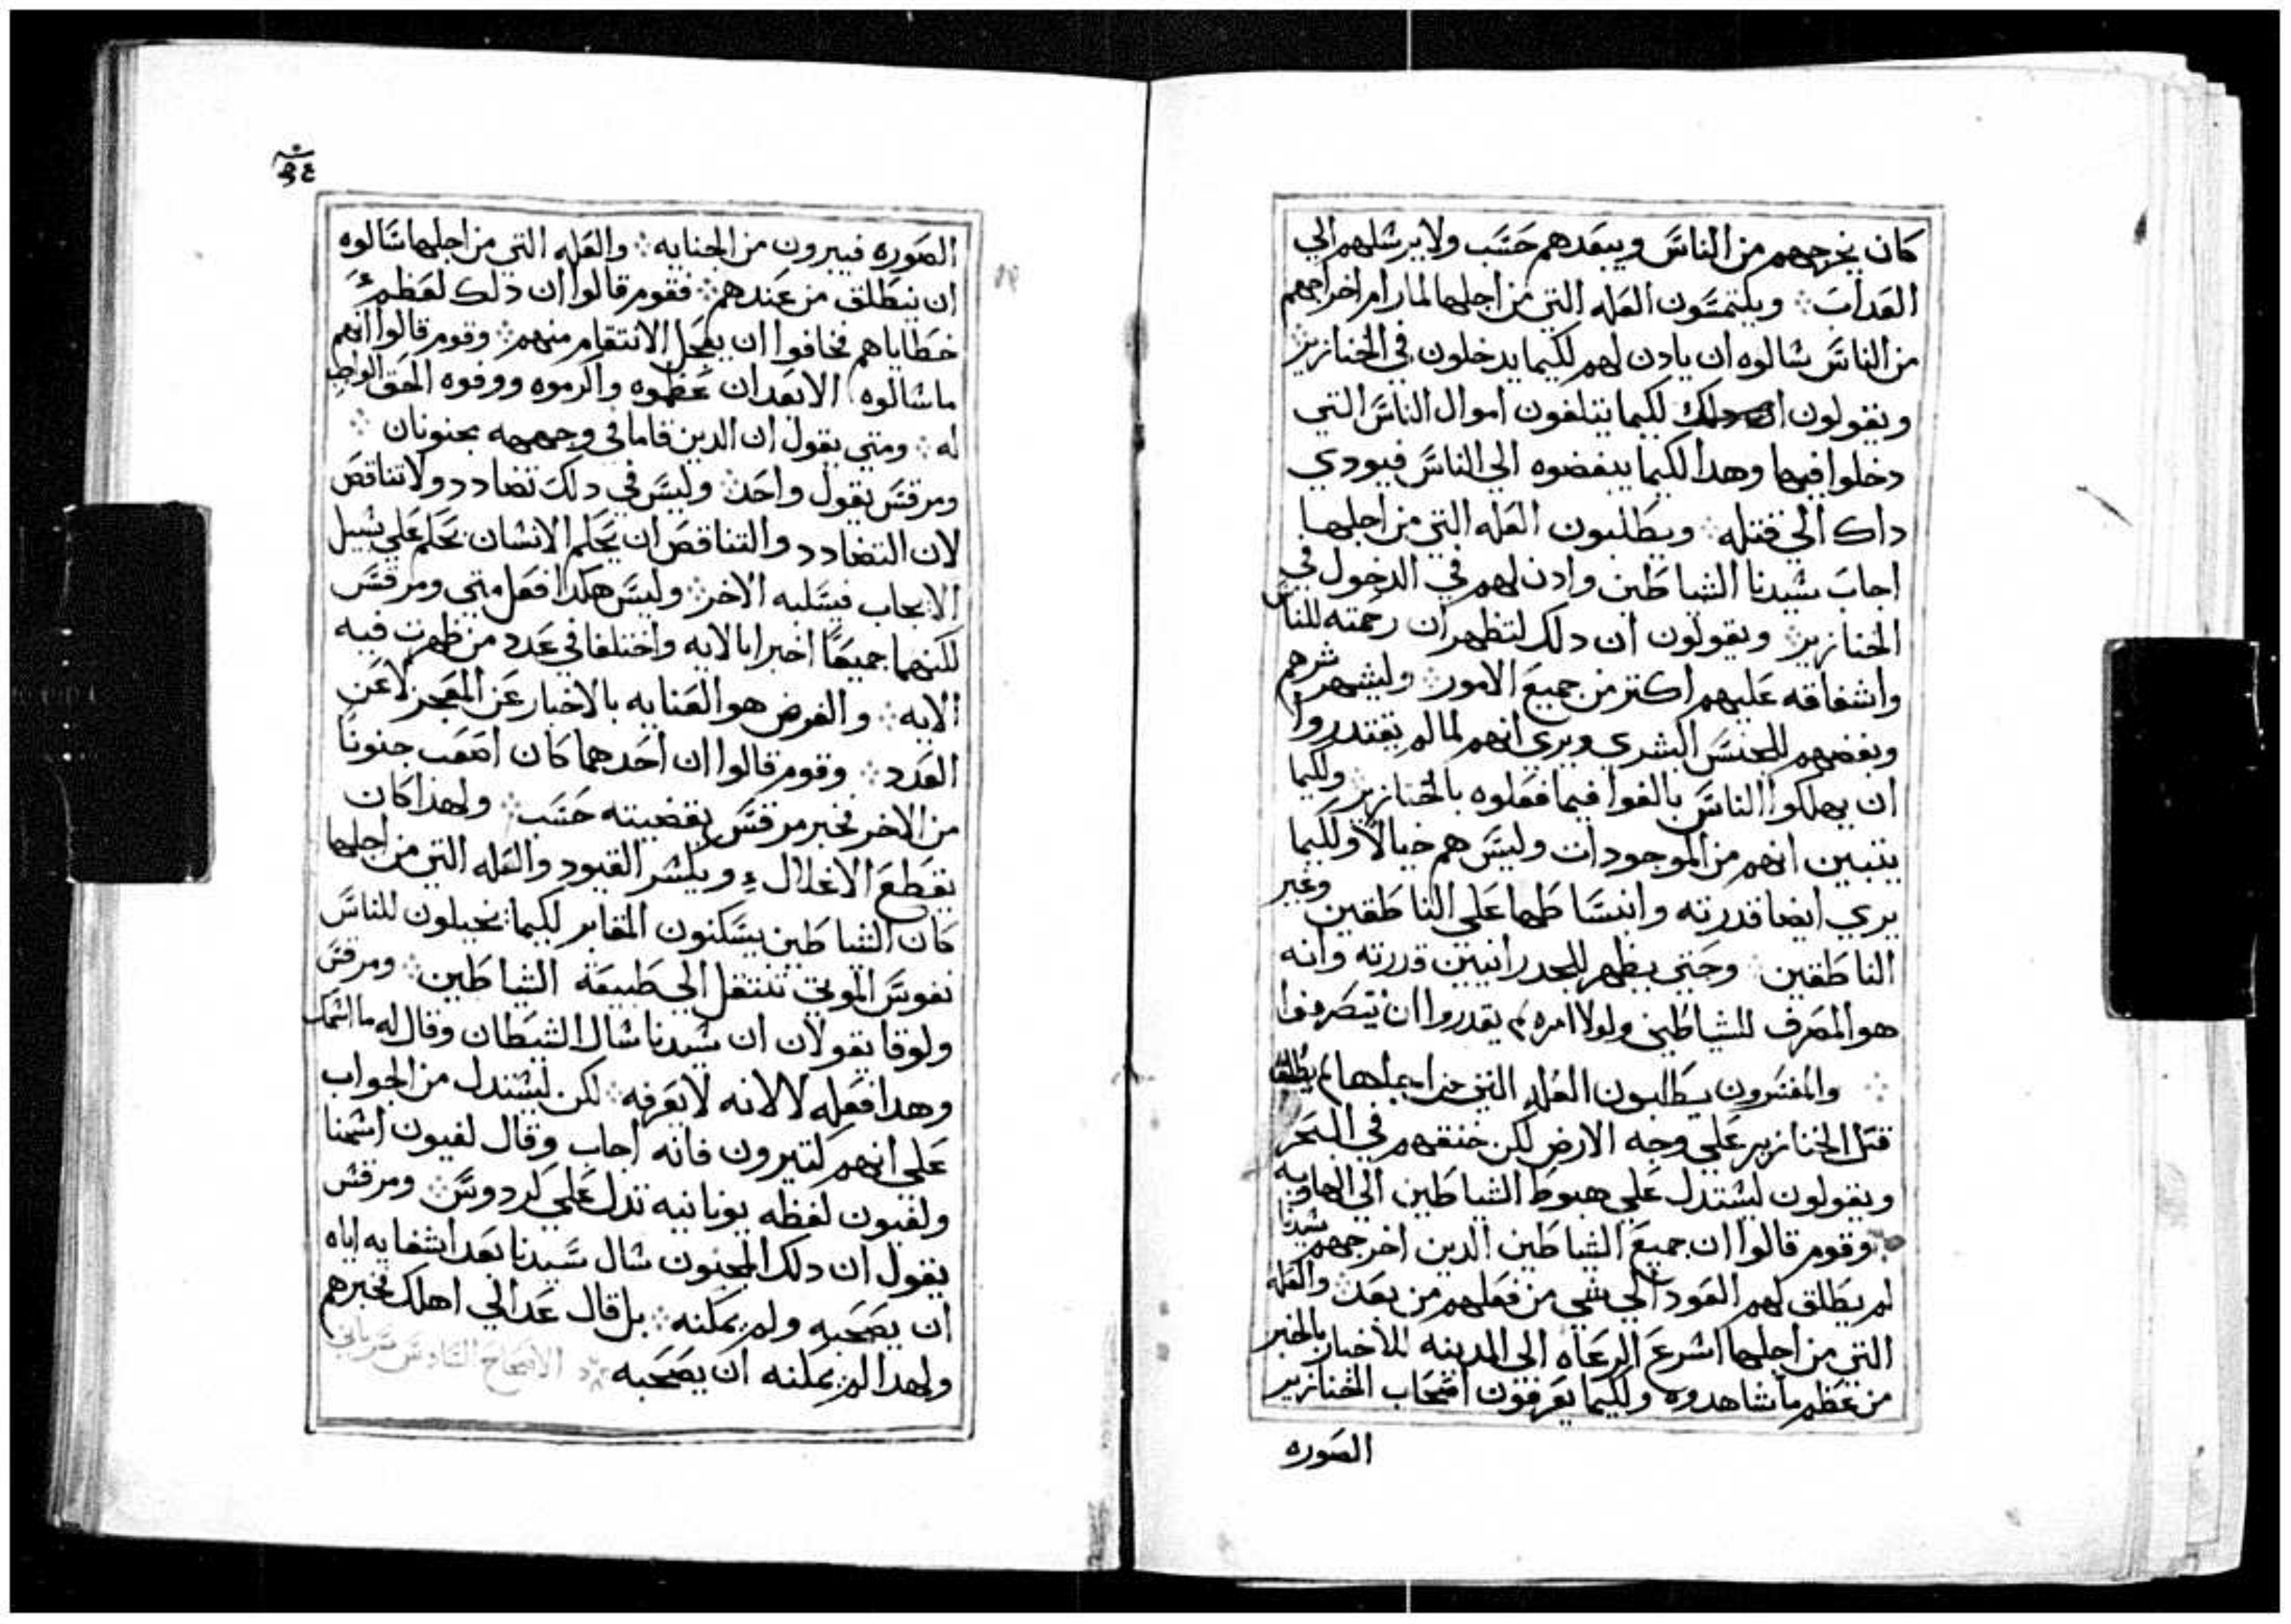 كان يخرجهم من الناس ويبعدهم حسب ولا يرسلهم الي
العداب ⁘ ويلتمسون العله التي من اجلها لما رام اخراجهم
من الناس سالوه ان يادن لهم لكيما يدخلون في الخنازير ⁘
ويقولون دلك لكيما يتلفون اموال الناس التي
دخلوا فيها وهدا لكيما يبغضوه الي الناس فيودي
داك الي قتله ⁘ ويطلبون العله التي من اجلها
اجاب سيدنا الشياطين وادن لهم في الدخول في
الخنازير ⁘ ويقولون ان دلك لتظهر ان رحمته للناس
واشفاقه عليهم اكتر من جميع الامور ⁘ وليشهر شرهم
وبغضهم للجنس البشري ويري انهم لما لم يقتدروا
ان يهلكوا الناس بالغوا فيما فعلوه بالخنازير ⁘ ولكيما
يتبين انهم من الموجودات وليس هم خيالا ولكيما
يري ايضا قدرته وانبساطها علي الناطقين وغير
الناطقين ⁘ وحتي يظهر للجدرانيين قدرته وانه
هو المصرف للشياطين ولولا امره لم يقدروا ان يتصرفوا
⁘ والمفسرون يطلبون العله التي من اجلها لم يطلق
قتل الخنازير علي وجه الارض لكن خنقهم في البحر
ويقولون ليستدل علي هبوط الشياطين الي الهاويه
⁘ وقوم قالوا ان جميع الشياطين الدين اخرجهم سيدنا
لم يطلق لهم العود الي شي من فعلهم من بعد ⁘ والعله
التي من اجلها اسرع الرعاه الي المدينه للاخبار بالخبر
من عظم ما شاهدوه ولكيما يعرفون اصحاب الخنازير
الصوره
الصوره فيبرون من الجنايه ⁘ والعله التي من اجلها سالوه
ان ينطلق من عندهم ⁘ فقوم قالوا ان دلك لعظم
خطاياهم فخافوا ان يعجل الانتقام منهم ⁘ وقوم قالوا انهم
ما سالوه الا بعد ان عظموه واكرموه ووفوه الحق الواجب
له ⁘ ومتي يقول ان الدين قاما في وجهه مجنونان ⁘
ومرقس يقول واحد ⁘ وليس في دلك تضادد ولا تناقض
لان التضادد والتناقض ان يحكم الانسان بحكم علي سبيل
الايجاب فيسلبه الاخر ⁘ وليس هكدا فعل متي ومرقس
لكنهما جميعا اخبرا بالايه واختلفا في عدد من ظهرت فيه
الايه ⁘ والغرض هو العنايه بالاخبار عن المعجز لا عن
العدد ⁘ وقوم قالوا ان احدهما كان اصعب جنونا
من الاخر فخبر مرقس بقضيته حسب ⁘ ولهدا كان
يقطع الاغلال ويكسر القيود والعله التي من اجلها
كان الشياطين يسكنون المقابر لكيما يخيلون للناس
نفوس الموتي تنتقل الي طبيعة الشياطين ⁘ ومرقس
ولوقا يقولان ان سيدنا سال الشيطان وقال له ما اسمك
وهدا فعله لا لانه لا يعرفه ⁘ لكن ليستدل من الجواب
علي انهم كتيرون فانه اجاب وقال لغيون اسمنا
ولغيون لفظه يونانيه تدل علي كردوس ⁘ ومرقس
يقول ان دلك المجنون سال سيدنا بعد اشفايه اياه
ان يصحبه ولم يمكنه ⁘ بل قال عد الي اهلك فخبرهم
ولهدا لم يمكنه ان يصحبه ⁘ الاصحاح السادس سرياني